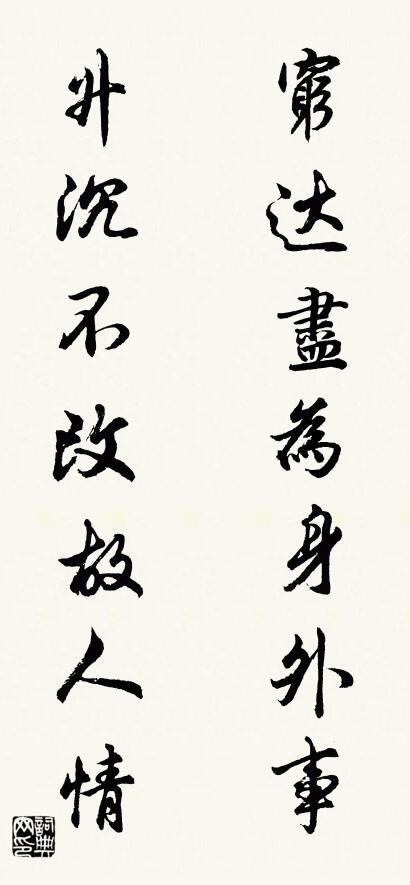 窮达盡為身外事
升沉不改故人情
詞典网印